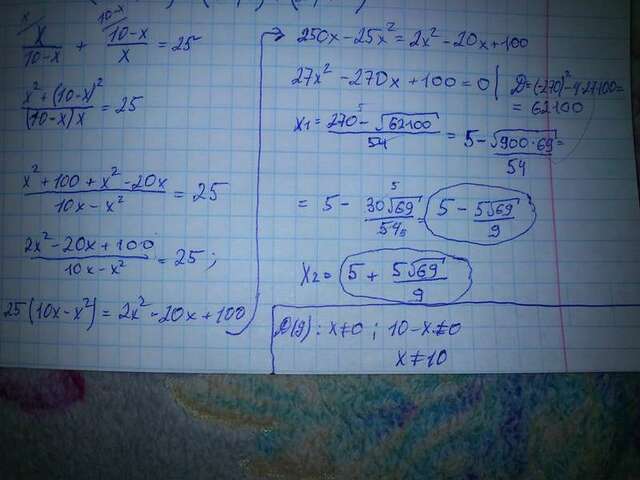 x/(10-x) + (10-x)/x = 25
(x² + (10-x)²)/((10-x)x) = 25
(x² + 100 + x² - 20x)/(10x - x²) = 25
(2x² - 20x + 100)/(10x - x²) = 25;
25(10x - x²) = 2x² - 20x + 100
250x - 25x² = 2x² - 20x + 100
27x² - 270x + 100 = 0 | D = (-270)² - 4·27·100 =
= 62100
x₁ = (270 - √62100)/54 = 5 - √(900·69)/54 =
= 5 - 30√69/54 = 5 - 5√69/9
x₂ = 5 + 5√69/9
D(y): x≠0; 10-x≠0
x≠10